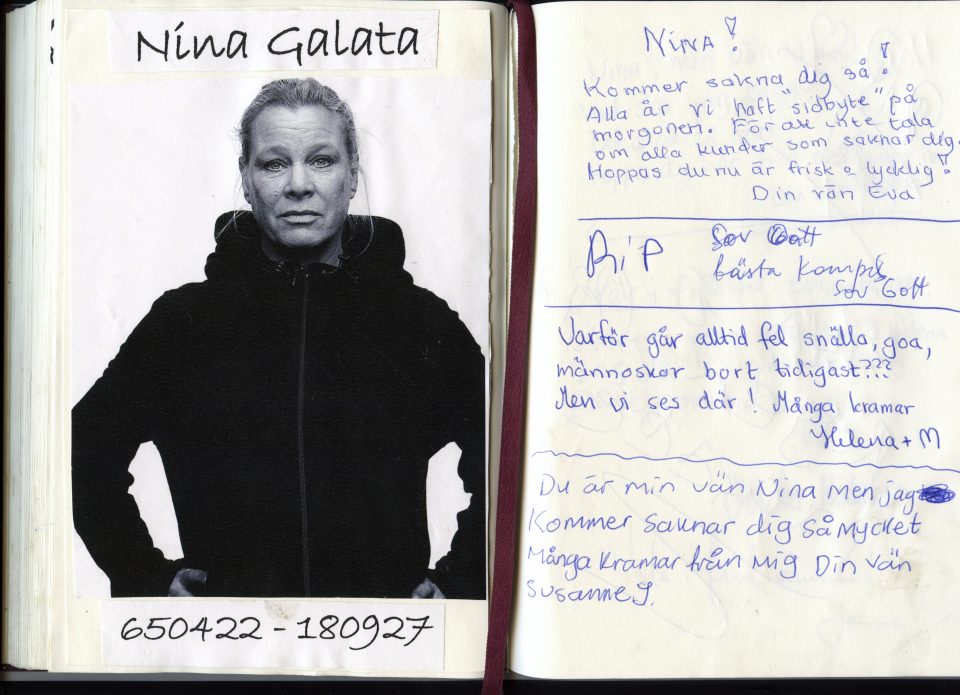 Nina Galata
650422 - 180927
NINA!
Kommer sakna dig så!
Alla år vi haft "sidbyte" på
morgonen. För att inte tala
om alla kunder som saknar dig.
Hoppas du nu är frisk o lycklig!
Din vän Eva
RiP
Sov Gott
bästa kompis
Sov Gott
Varför går alltid fel snälla, goa,
människor bort tidigast???
Men vi ses där! Många kramar
Helena + M
Du är min vän Nina Men jag
Kommer Saknar dig så Mycket
Många kramar från Mig Din vän
Susanne J.